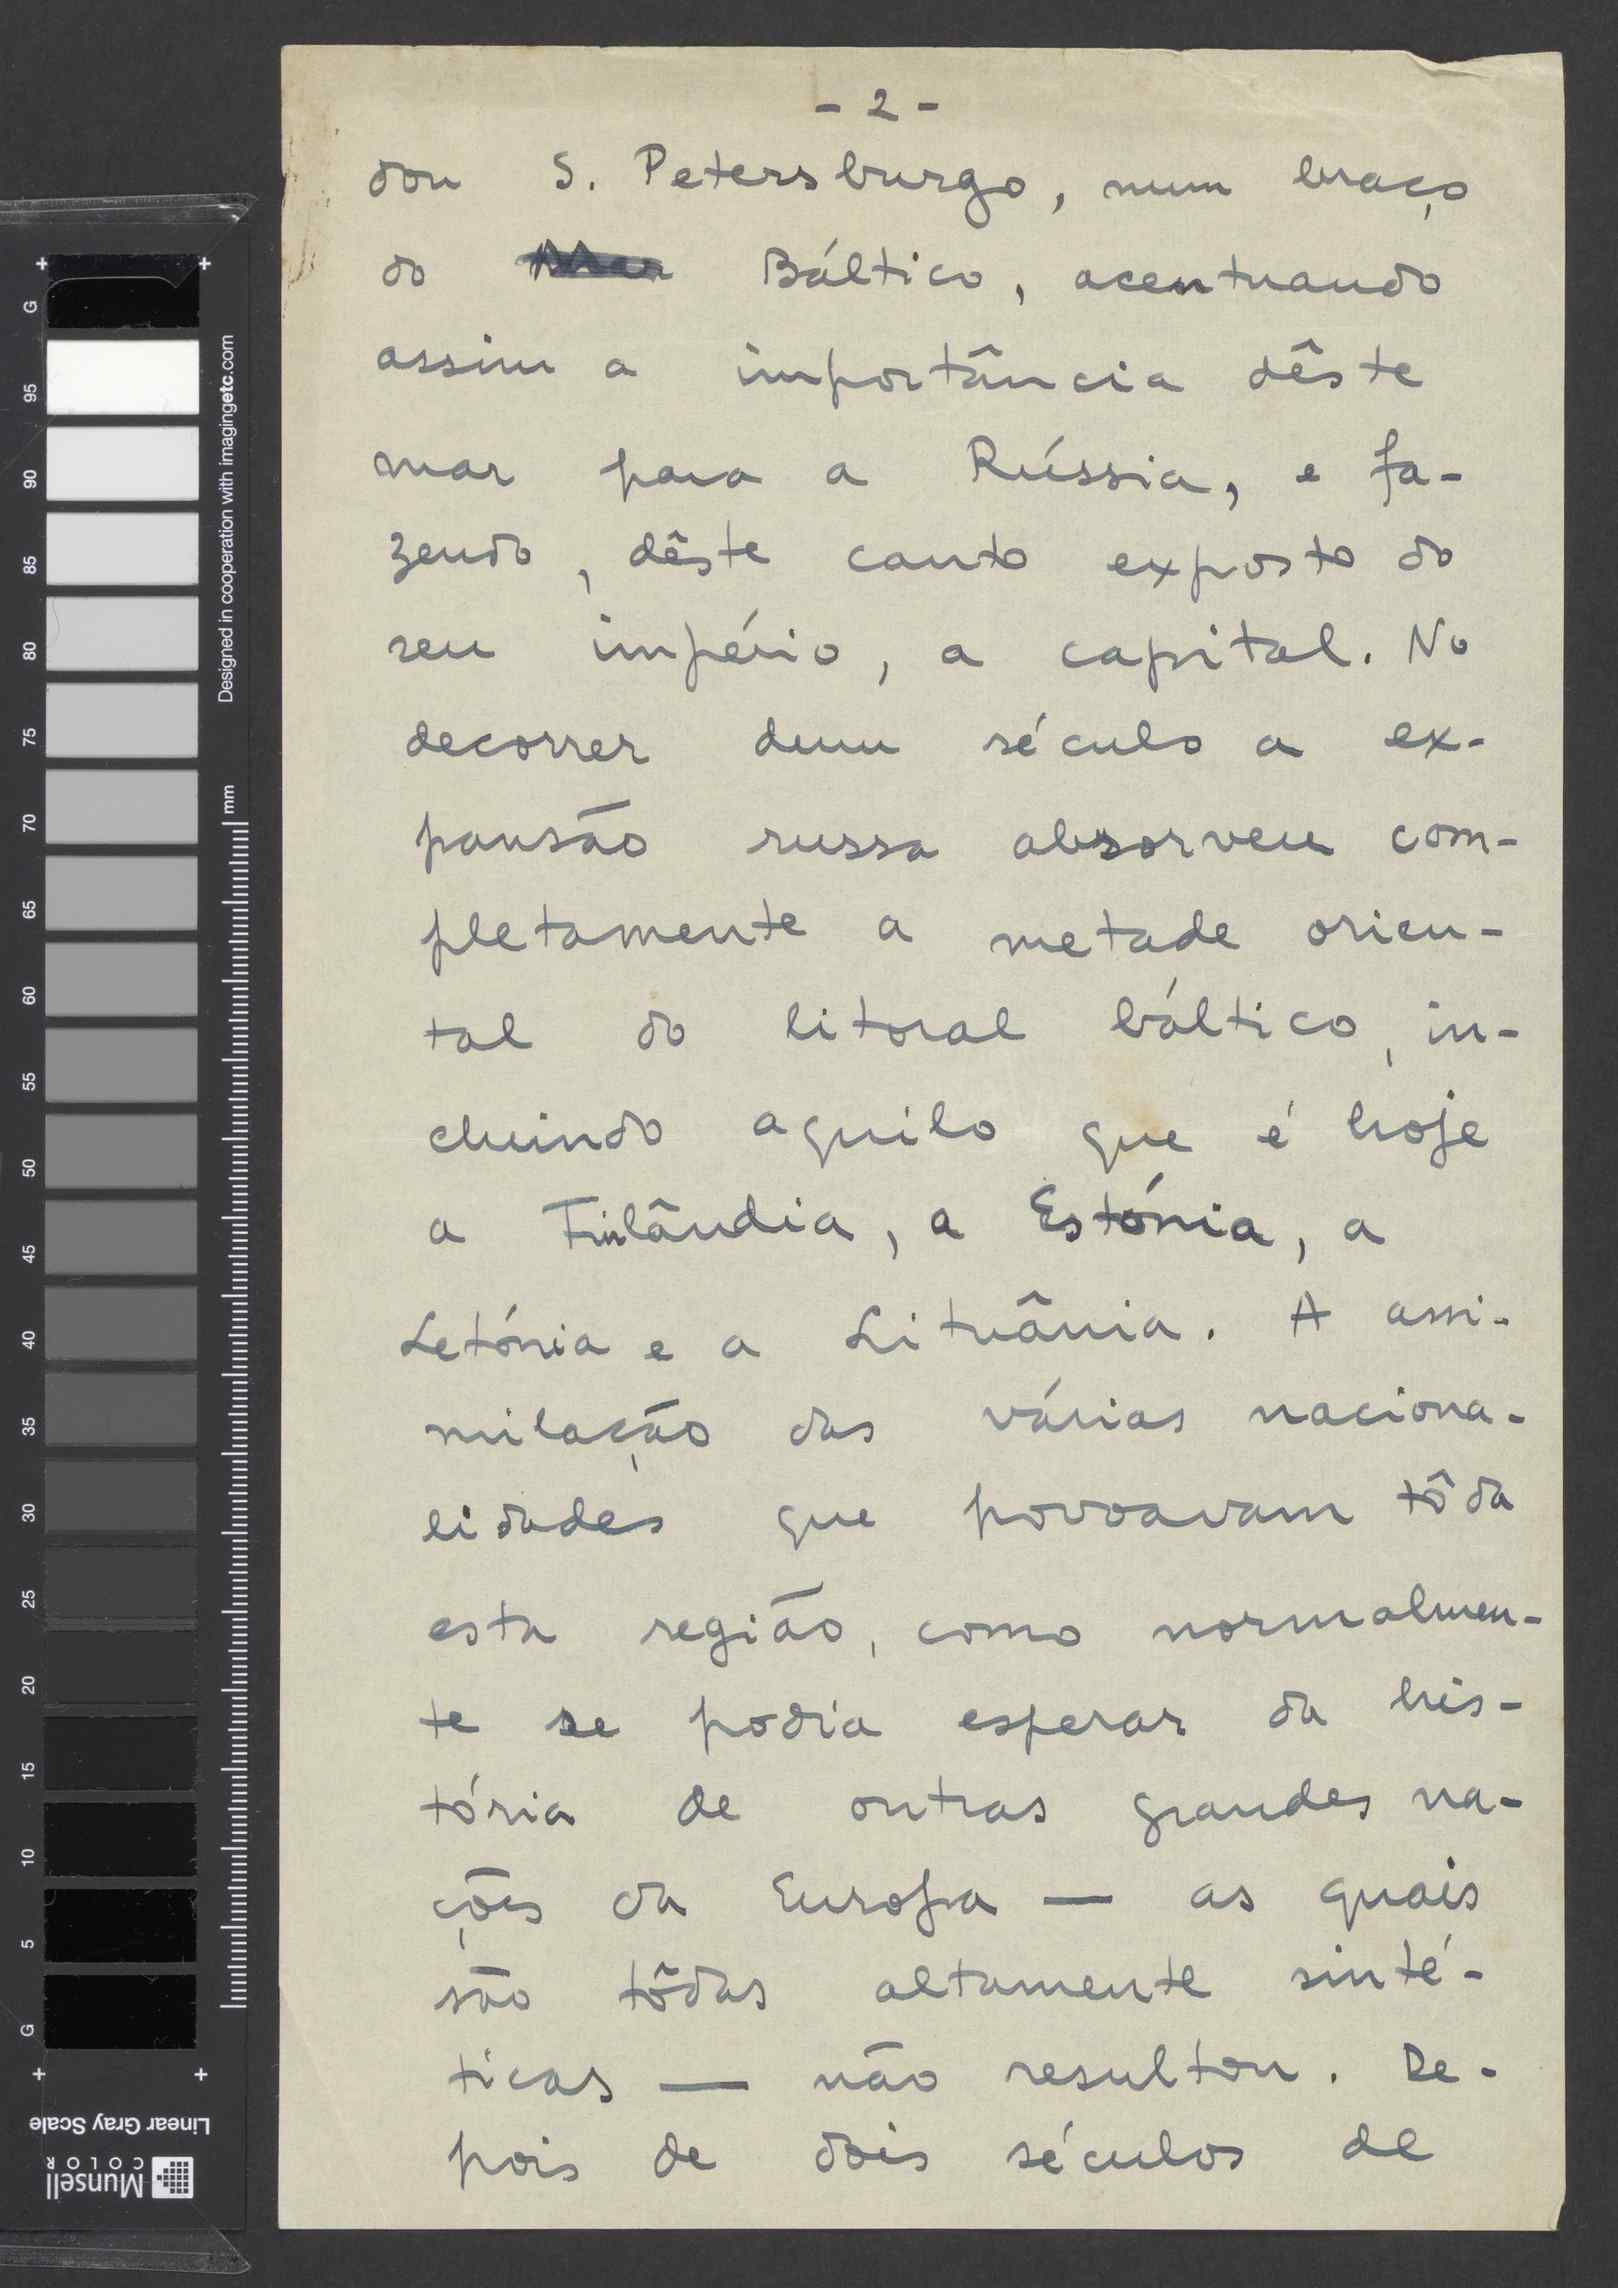 - 2 -
dou S. Petersburgo, num braço
do Mar Báltico, acentuando
assim a importância dêste
mar para a Rússia, e fa-
zendo, dêste canto exposto do
seu império, a capital. No
decorrer dum século a ex-
pansão russa absorveu com-
pletamente a metade orien-
tal do litoral báltico, in-
cluindo aquilo que é hoje
a Finlândia, a Estónia, a
Letónia e a Lituânia. A assi-
milação das várias naciona-
lidades que povoavam tôda
esta região, como normalmen-
te se podia esperar da his-
tória de outras grandes na-
ções da Europa — as quais
são tôdas altamente sinté-
ticas — não resultou. De-
pois de dois séculos de
G
95
90
85
80
75
70
65
60
55
50
45
40
35
30
25
20
15
10
5
G
Designed in cooperation with imagingetc.com
mm
Linear Gray Scale
Munsell
COLOR